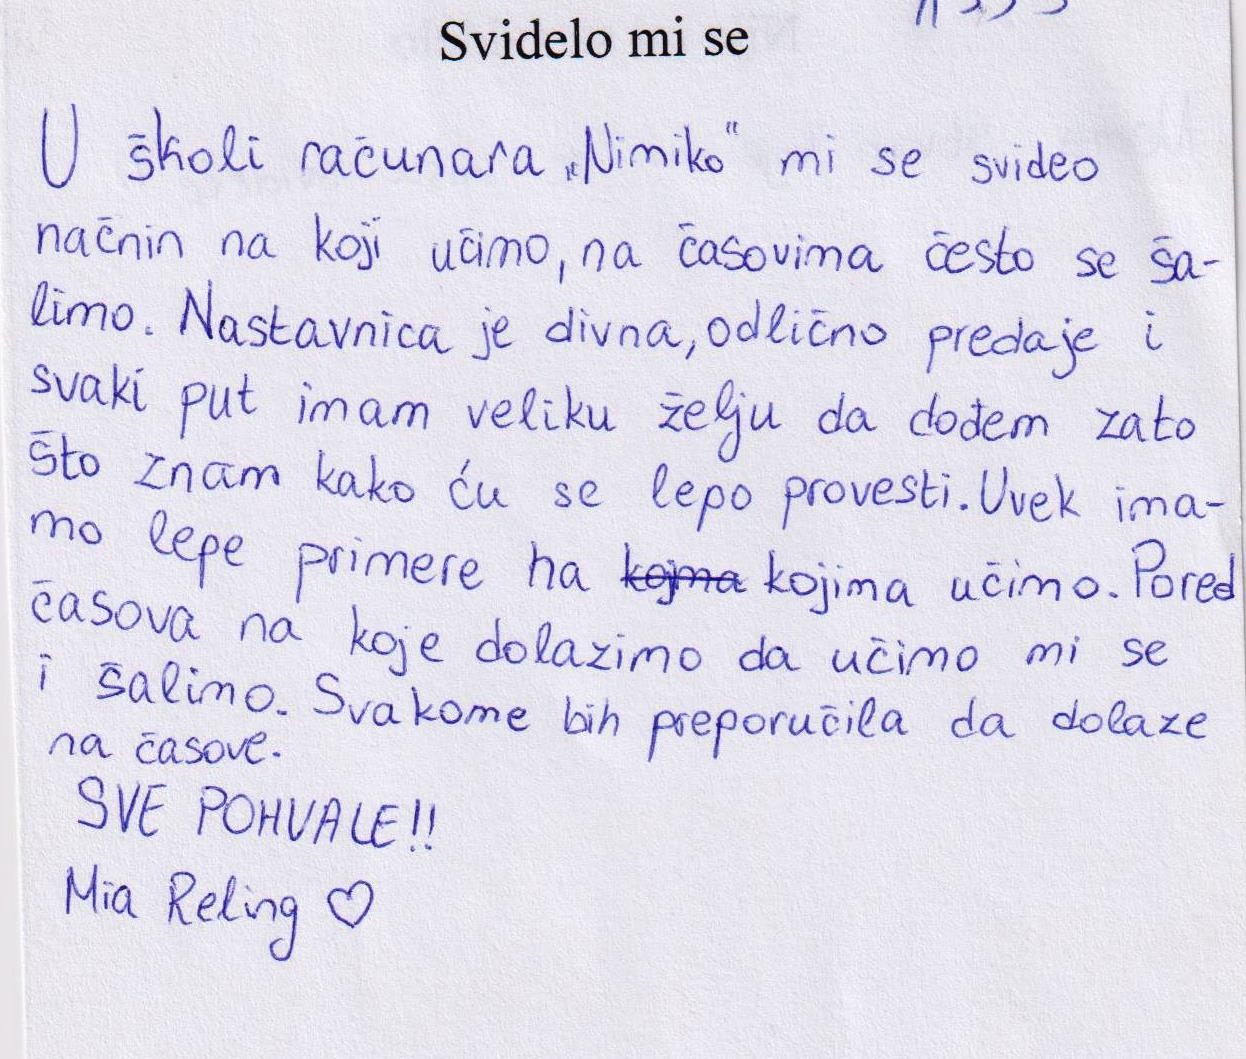 Svidelo mi se
U školi računara „Nimiko" mi se svideo
načnin na koji učimo, na časovima često se ša-
limo. Nastavnica je divna, odlično predaje i
svaki put imam veliku želju da dođem zato
što znam kako ću se lepo provesti. Uvek ima-
mo lepe primere na kojma kojima učimo. Pored
časova na koje dolazimo da učimo mi se
i šalimo. Svakome bih preporučila da dolaze
na časove.
SVE POHVALE!!
Mia Reling ♡